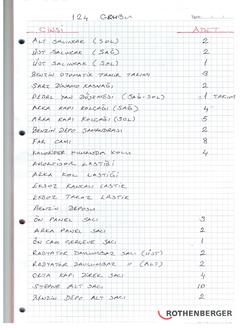 124 GRUBU
CİNSİ ADET
ALT SALINCAK (SOL) 2
ÜST SALINCAK (SAĞ) 2
ÜST SALINCAK (SOL) 1
BENZİN OTOMATİK TAMİR TAKIMI 3
ŞARJ DİNAMO KASNAĞI 2
PEDAL YAN DÖŞEMESİ (SAĞ-SOL) 1 TAKIM
ARKA KAPI KOLÇAĞI (SAĞ) 4
ARKA KAPI KOLÇAĞI (SOL) 5
BENZİN DEPO ŞAMANDRASI 2
FAR CAMI 8
KALORİFER KUMANDA KOLU 4
AMORTİSÖR LASTİĞİ
ARKA KOL LASTİĞİ
EKSOZ KANCALI LASTİK
EKSOZ LASTİK
BENZİN DEPOSU
ÖN PANEL SACI 3
ARKA PANEL SACI 2
ÖN CAM ÇERÇEVE SACI 1
RADYATÖR DAVLUMBAZ SACI (ÜST) 2
RADYATÖR DAVLUMBAZ " (ALT) 2
ORTA KAPI DİREK SACI 4
STEPNE ALT SACI 10
BENZİN DEPO ALT SACI 2
ROTHENBERGER